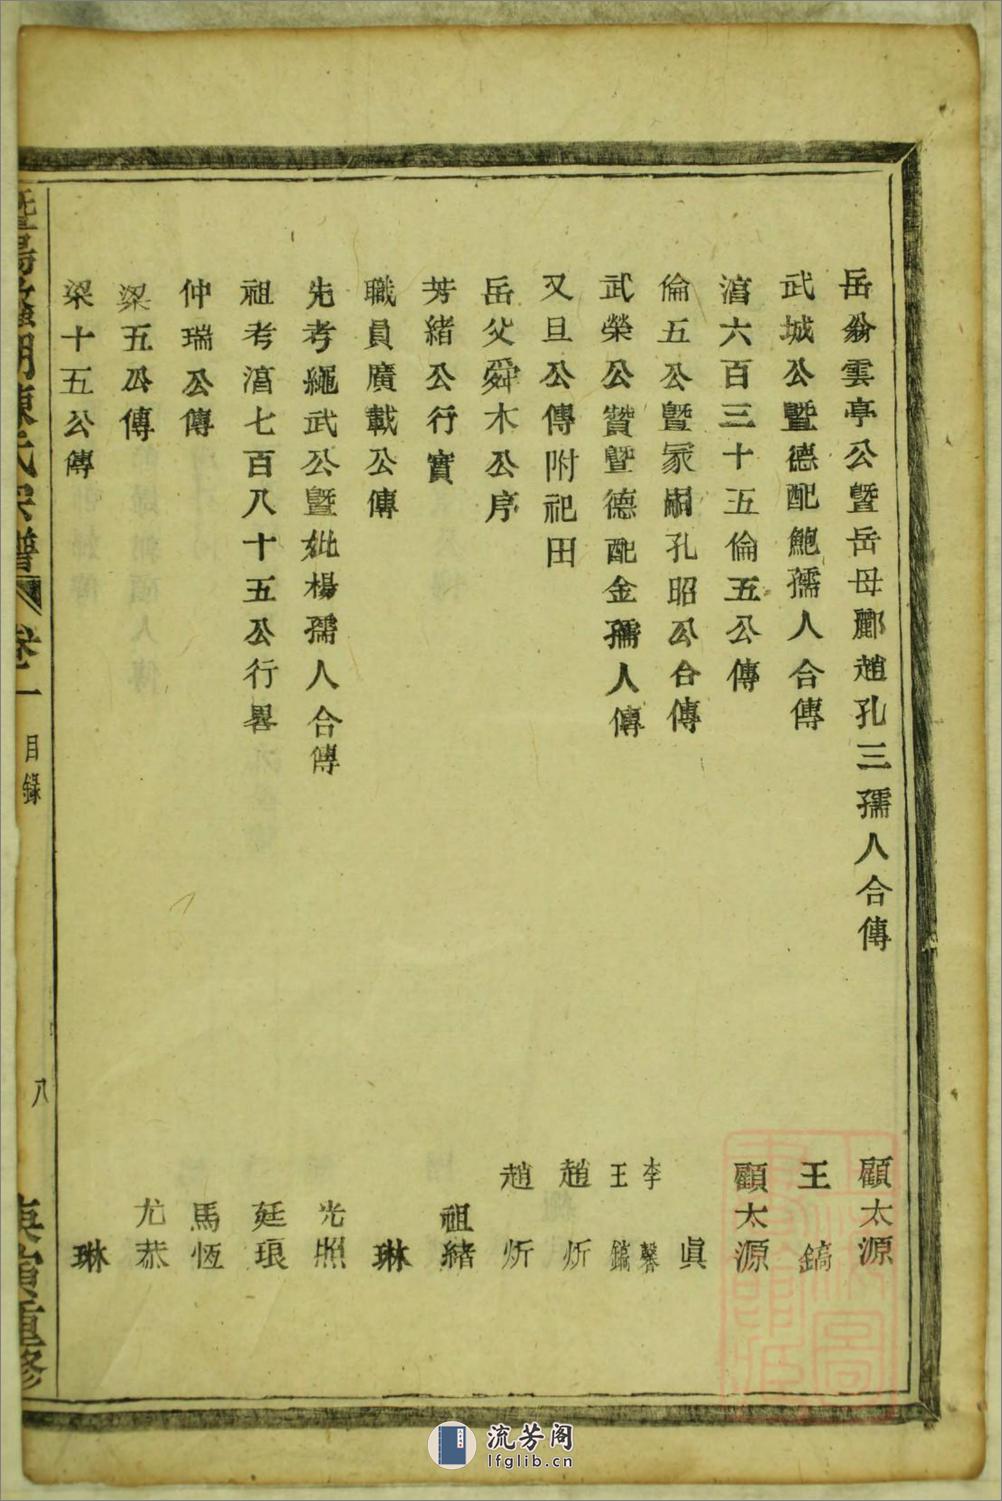 岳翁雲亭公曁岳母酈趙孔三孺人合傳 顧太源
武城公曁德配鮑孺人合傳 王鎬
渟六百三十五倫五公傳 顧太源
倫五公曁冢嗣孔昭公合傳 眞
武榮公贊曁德配金孺人傳 李馨 王鎬
又旦公傳附祀田 趙炘
岳父舜木公序 趙炘
芳緒公行實 祖緒
職員廣載公傳 琳
先考繩武公曁妣楊孺人合傳 光照
祖考渟七百八十五公行畧 廷琅
仲瑞公傳 馬恆
梁五公傳 尤恭
梁十五公傳 琳
暨陽 湖陳氏宗譜 卷一 目錄 八 庚寅重修
流芳阁
lfglib.cn